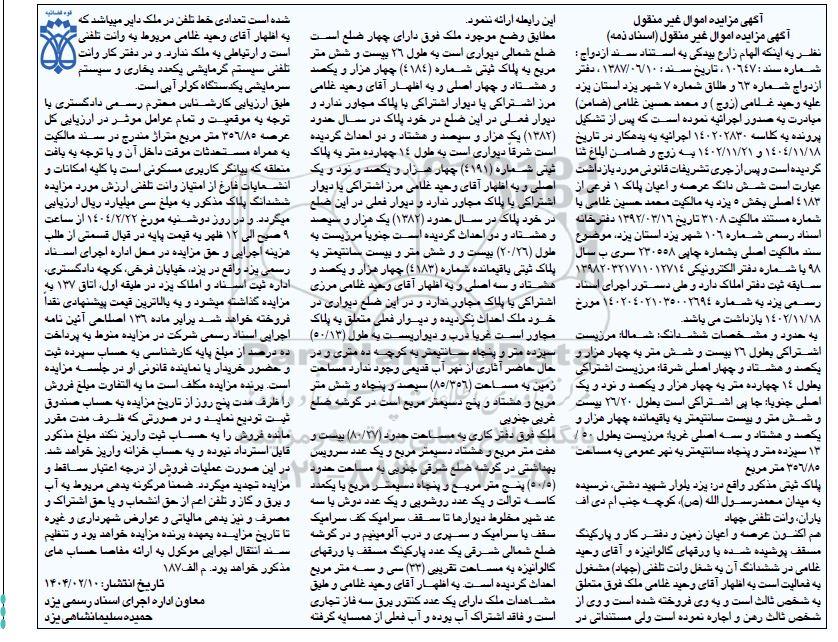 آگهی مزایده اموال غیر منقول
آگهی مزایده اموال غیر منقول (اسناد ذمه)
نظر به اینکه الهام زارع بیدکی به استناد سند ازدواج :
شماره سند : ۱۰۶۴۷، تاریخ سند : ۱۳۸۷/۰۶/۱۰، دفتر
ازدواج شماره ۶۳ و طلاق شماره ۷ شهر یزد استان یزد
علیه وحید غلامی (زوج ) و محمد حسین غلامی (ضامن)
مبادرت به صدور اجرائیه نموده است که پس از تشکیل
پرونده به کلاسه ۱۴۰۲۰۲۸۳۰ اجرائیه به بدهکار در تاریخ
۱۴۰۴/۱۱/۱۸ و ۱۴۰۲/۱۱/۲۱ به زوج و ضامن ابلاغ شا
گردیده است و پس از جری تشریفات قانونی مورد بازداشت
عبارت است شش دانگ عرصه و اعیان پلاک ۱ فرعی از
۴۱۸۳ اصلی بخش ۵ یزد به مالکیت محمد حسین غلامی با
شماره مستند مالکیت ۳۱۰۸ تاریخ ۱۳۹۲/۰۳/۱۶ دفترخانه
اسناد رسمی شماره ۱۰۶ شهر یزد استان یزد، موضوع
سند مالکیت اصلی بشماره چاپی ۲۳۰۵۵۸ سری ب سال
۹۸ با شماره دفتر الکترونیکی ۱۳۹۸۲۰۳۲۱۷۱۱۰۱۲۷۱۴
سابقه ثبت دفتر املاک دارد و طی دستور اجرای اسناد
رسمی یزد به شماره ۱۴۰۲۰۴۰۲۱۰۳۵۰۰۲۶۹۴ مورخ
۱۴۰۲/۱۱/۱۸ بازداشت می باشد.
به حدود و مشخصات ششدانگ: شمالا: مرزیست
اشتراکی بطول ۲۶ بیست و شش متر به چهار هزار و
یکصد و هشتاد و چهار اصلی شرقا: مرزیست اشتراکی
بطول ۱۴ چهارده متر به چهار هزار و یکصد و نود و یک
اصلی جنوبا: جا پی اشتراکی است بطول ۲۶/۲۰ بیست
و شش متر و بیست سانتیمتر به باقیمانده چهار هزار و
یکصد و هشتاد و سه اصلی غربا: مرزیست بطول ۵۰ /
۱۳ سیزده متر و پنجاه سانتیمتر به نهر عمومی به مساحت
۳۵۶/۸۵ متر مربع
پلاک ثبتی مذکور واقع در: یزد بلوار شهید دشتی، نرسیده
به میدان محمدرسول الله (ص)، کوچه جنب ام دی اف
یاران، وانت تلفنی جهاد
هم اکنون عرصه و اعیان زمین و دفتر کار و پارکینگ
مسقف پوشیده شده با ورقهای گالوانیزه و آقای وحید
غلامی در ششدانگ آن به شغل وانت تلفنی (جهاد) مشغول
به فعالیت است به اظهار آقای وحید غلامی ملک فوق متعلق
به شخص ثالث است و به وی فروخته شده است و وی از
شخص ثالث رهن و اجاره نموده است ولی مستنداتی در
این رابطه ارائه ننمود.
مطابق وضع موجود ملک فوق دارای چهار ضلع است
ضلع شمالی دیواری است به طول ۲۶ بیست و شش متر
مربع به پلاک ثبتی شماره (۴۱۸۴) چهار هزار و یکصد
و هشتاد و چهار اصلی و به اظهار آقای وحید غلامی
مرز اشتراکی با دیوار اشتراکی با پلاک مجاور ندارد و
دیوار فعلی در این ضلع در خود پلاک در سال حدود
(۱۳۸۲) یک هزار و سیصد و هشتاد و دو احداث گردیده
است شرقاً دیواری است به طول ۱۴ چهارده متر به پلاک
ثبتی شماره (۴۱۹۱) چهار هزار و یکصد و نود و یک
اصلی و به اظهار آقای وحید غلامی مرز اشتراکی با دیوار
اشتراکی با پلاک مجاور ندارد و دیوار فعلی در این ضلع
در خود پلاک در سال حدود (۱۳۸۲) یک هزار و سیصد
و هشتاد و دو احداث گردیده است جنوباً مرزیست به
طول (۲۰/۲۶) بیست و و شش متر و بیست سانتیمتر به
پلاک ثبتی باقیمانده شماره (۴۱۸۳) چهار هزار و یکصد و
هشتاد و سه اصلی و به اظهار آقای وحید غلامی مرزی
اشتراکی با پلاک مجاور ندارد و در این ضلع دیواری در
خود ملک احداث نگردیده و دیوار فعلی متعلق به پلاک
مجاور است غربا درب و دیواریست به طول (۵۰/۱۳)
سیزده متر و پنجاه سانتیمتر به کوچه ده متری و در
حال حاضر آثاری از نهر آب قدیمی وجود ندارد مساحت
زمین به مساحت (۸۵/۳۵۶) سیصد و پنجاه و شش متر
مربع و هشتاد و پنج دسیمتر مربع است در گوشه ضلع
غربی جنوبی
ملک فوق دفتر کاری به مساحت حدود (۸۰/۲۷) بیست و
هفت متر مربع و هشتاد دسیمتر مربع و یک عدد سرویس
بهداشتی در گوشه ضلع شرقی جنوبی به مساحت حدود
(۵۰/۵) پنج متر مربع و پنجاه دسیمتر مربع با یکعدد
کاسه توالت و یک عدد روشویی و یک عدد دوش با سه
عد شیر مخلوط دیوارها تا سقف سرامیک کف سرامیک
سقف با سرامیک و سپری و درب آلومینیم و در گوشه
ضلع شمالی شرقی یک عدد پارکینگ مسقف با ورقهای
گالوانیزه به مساحت تقریبی (۳۳) سی و سه متر مربع
احداث گردیده است. به اظهار آقای وحید غلامی و طبق
مشاهدات ملک دارای یک عدد کنتور برق سه فاز تجاری
است و فاقد اشتراک آب بوده و آب فعلی از همسایه گرفته
شده است تعدادی خط تلفن در ملک دایر میباشد که
به اظهار آقای وحید غلامی مربوط به وانت تلفنی
است و ارتباطی به ملک ندارد. و در دفتر کار وانت
تلفنی سیستم گرمایشی یکعدد بخاری و سیستم
سرمایشی یکدستگاه کولر آبی است.
طبق ارزیابی کارشناس محترم رسمی دادگستری با
توجه به موقعیت و تمام عوامل موثر در ارزیابی کل
عرصه ۳۵۶/۸۵ متر مربع متراژ مندرج در سند مالکیت
به همراه مستحدثات موقت داخل آن و با توجه به بافت
منطقه که بیانگر کاربری مسکونی است با کلیه امکانات و
انشعابات فارغ از امتیاز وانت تلفنی ارزش مورد مزایده
ششدانگ پلاک مذکور به مبلغ سی میلیارد ریال ارزیابی
میگردد. و در روز دوشنبه مورخ ۱۴۰۴/۲/۲۲ از ساعت
۹ صبح الی ۱۲ ظهر به قیمت پایه در قبال قسمتی از طلب
هزینه اجرایی و حق مزایده در محل اداره اجرای اسناد
رسمی یزد واقع در یزد، خیابان فرخی، کوچه دادگستری،
اداره ثبت اسناد و املاک یزد در طبقه اول، اتاق ۱۳۷ به
مزایده گذاشته میشود و به بالاترین قیمت پیشنهادی نقداً
فروخته خواهد شد برابر ماده ۱۳۶ اصلاحی آئین نامه
اجرایی اسناد رسمی شرکت در مزایده منوط به پرداخت
ده درصد از مبلغ پایه کارشناسی به حساب سپرده ثبت
و حضور خریدار یا نماینده قانونی او در جلسه مزایده
است. برنده مزایده مکلف است ما به التفاوت مبلغ فروش
را ظرف مدت پنج روز از تاریخ مزایده به حساب صندوق
ثبت تودیع نماید و در صورتی که ظرف مدت مقرر
مانده فروش را به حساب ثبت واریز نکند مبلغ مذکور
قابل استرداد نبوده و به حساب خزانه واریز خواهد شد.
در این صورت عملیات فروش از درجه اعتبار ساقط و
مزایده تجدید میگردد. ضمنا هرگونه بدهی مربوط به آب
و برق و گاز و تلفن اعم از حق انشعاب و یا حق اشتراک و
مصرف و نیز بدهی مالیاتی و عوارض شهرداری و غیره
تا تاریخ مزایده بعهده برنده مزایده خواهد بود و تنظیم
سند انتقال اجرایی موکول به ارائه مفاصا حساب های
مذکور خواهد بود. م الف۱۸۷
تاریخ انتشار: ۱۴۰۴/۰۲/۱۰
معاون اداره اجرای اسناد رسمی یزد
حمیده سلیمانشاهی یزد
قوه قضائیه
ParsNamadData
۰۲۱-۸۸۳۴۹۶۷۰